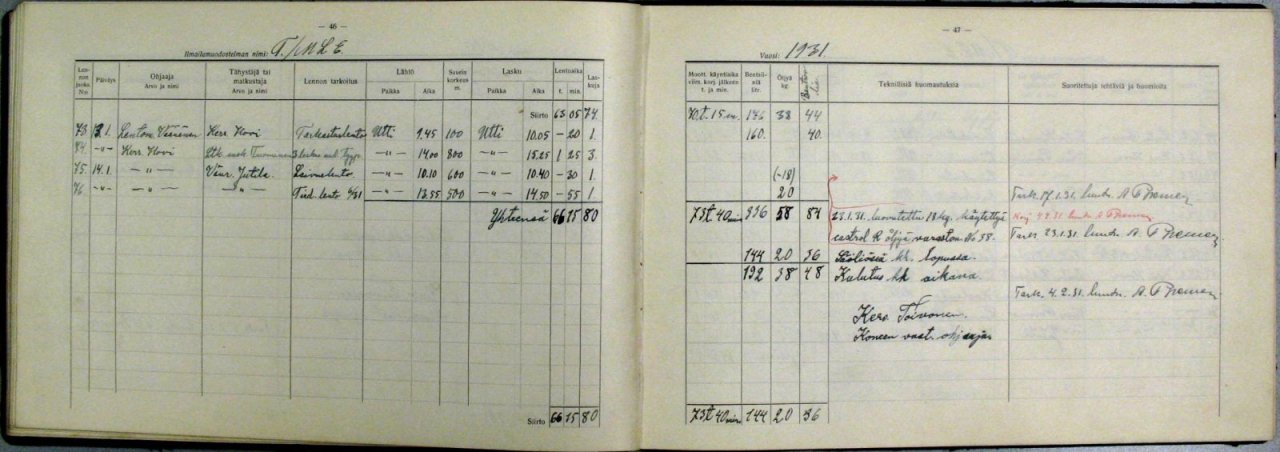 — 46 —
Ilmailumuodostelman nimi: T./M.L.E.
Lennon jarko. N:o Päiväys Ohjaaja Arvo ja nimi Tähystäjä tai matkustaja Arvo ja nimi Lennon tarkoitus Lähtö Paikka Aika Suurin korkeus m. Lasku Paikka Aika Lentoaika t. min. Laskuja
Siirto 63 05 74
73. 3.1. Lentom. Väänänen Kers. Hovi Tarkastuslento Utti 9.45 100 Utti 10.05 — 20 1.
74. — Kers. Hovi Ltk. Tuomonen 3 —„— 14.00 800 —„— 15.25 1 25 3.
75. 14.1. —„— Vänr. Jutila —„— 10.10 600 —„— 10.40 — 30 1.
76 —„— —„— —„— Tied. lento 4/31 —„— 13.55 500 —„— 14.50 — 55 1.
Yhteensä 66 15 80
Siirto 66 15 80
— 47 —
Vuosi: 1931.
Moott. käyntiaika viim. korj. jälkeen t. ja min. Bentsiiniä litr. Öljyä kg. Teknillisiä huomautuksia Suoritettuja tehtäviä ja huomioita
70.t. 15 m. 176 38 44
160. 40.
(-18)
20 Tark. 17.1.31.
73t 40 min 336 58 84 23.1.31. luovutettu 18 kg. käytettyä
castrol R öljyä varaston No 38. Tark. 23.1.31.
144 20 36 Säiliössä kk. lopussa.
192 38 48 Kulutus kk aikana.
Tark. 4.2.31.
Kers. Toivonen.
Koneen vast. ohjaaja
73t 40 min 144 20 36